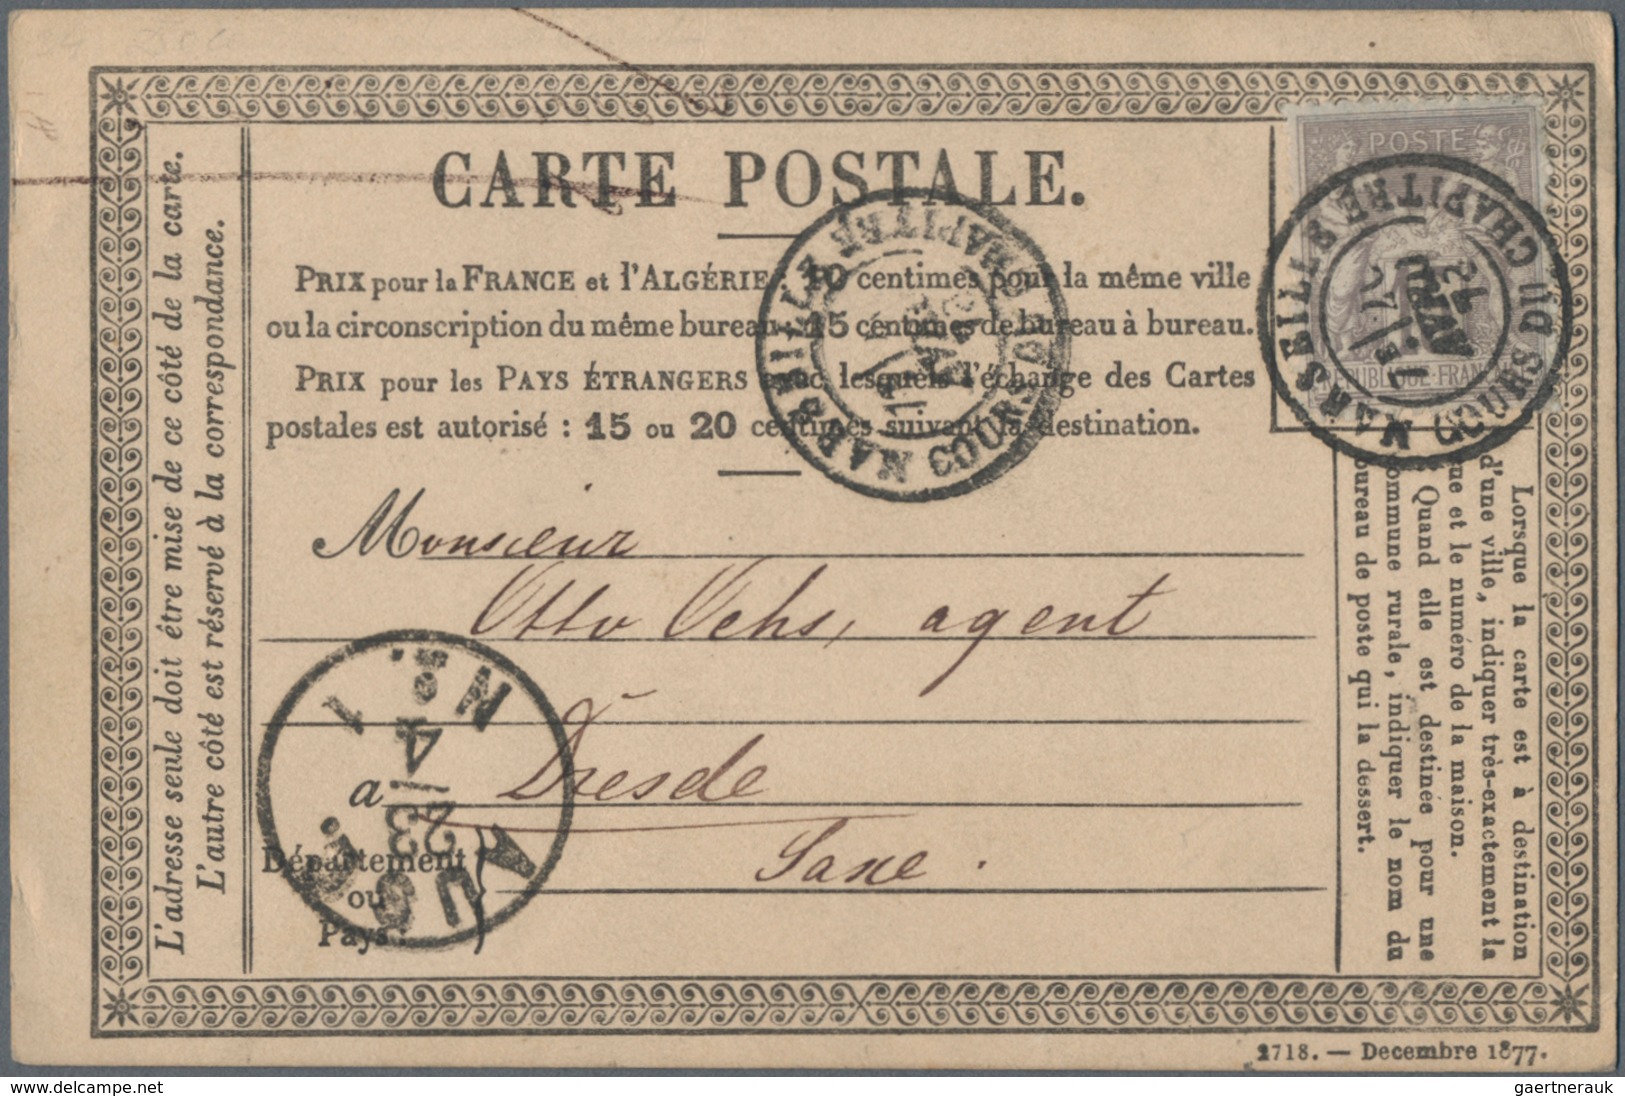 CARTE POSTALE.
PRIX pour la FRANCE et l'ALGÉRIE 10 centimes pour la même ville
ou la circonscription du même bureau; 15 centimes de bureau à bureau.
PRIX pour les PAYS ÉTRANGERS avec lesquels l'échange des Cartes
postales est autorisé : 15 ou 20 centimes suivant la destination.
L'adresse seule doit être mise de ce côté de la carte.
L'autre côté est réservé à la correspondance.
POSTE
RÉPUBLIQUE FRANC
MARSEILLE CHAPITRE
COURS DU
AVRIL
MARSEILLE COURS DU CHAPITRE
Monsieur
Otto Ochs, agent
a Dresde
Département
ou
Pays:
Saxe.
AUSG.
23
4
N.
1
Lorsque la carte est à destination
d'une ville, indiquer très-exactement la
rue et le numéro de la maison.
Quand elle est destinée pour une
commune rurale, indiquer le nom du
bureau de poste qui la dessert.
2718. — Decembre 1877.
www.delcampe.net
gaertnerauk